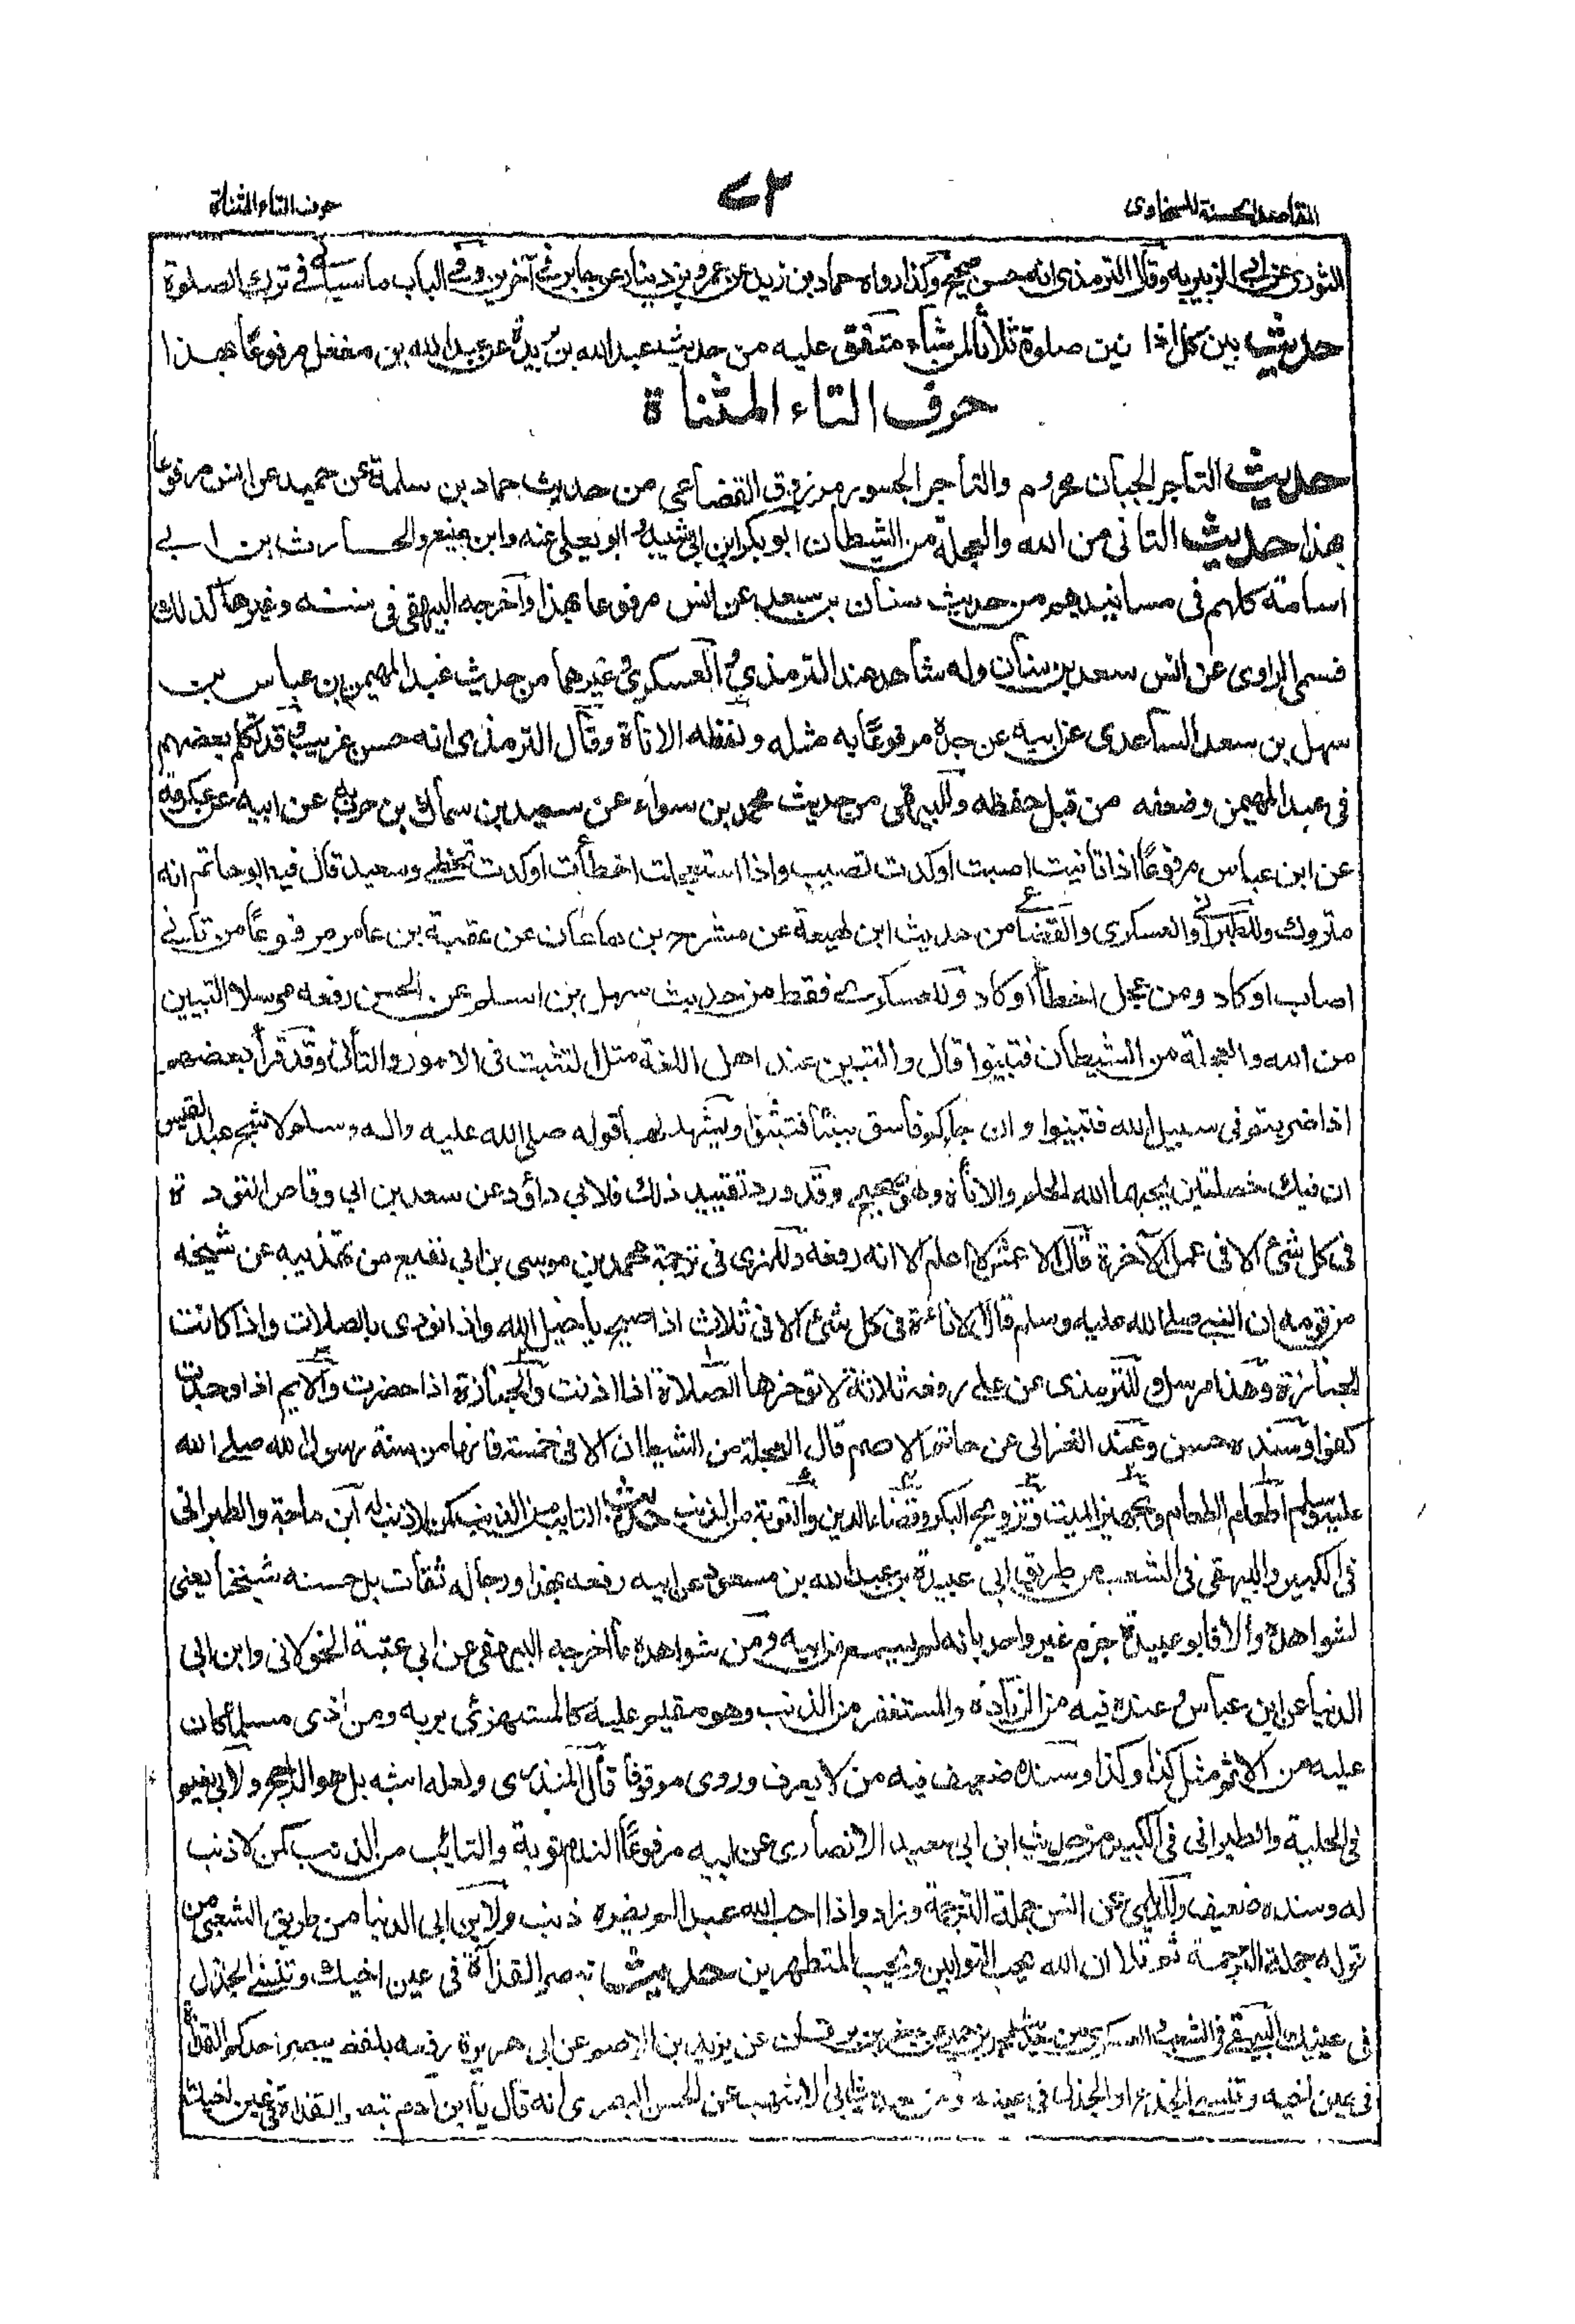 المقاصد الحسنة للسخاوى
٧٣
حرف التاء المثناة
الثورى عن ابى الزبير به وقال الترمذى انه حسن صحيح وكذا رواه حماد بن زيد عن عمرو بن دينار عن جابر فى آخرين وفى الباب ما سياتى فى ترك الصلوة
حديث بين كل اذانين صلوة ثلاثا لمن شاء متفق عليه من حديث عبد الله بن بريدة عن عبد الله بن مغفل مرفوعا بهذا
حرف التاء المثناة
حديث التاجر الجبان محروم والتاجر الجسور مرزوق القضاعى من حديث حماد بن سلمة عن حميد عن انس مرفوعا
بهذا حديث التانى من الله والعجلة من الشيطان ابو بكر ابن ابى شيبة و ابو يعلى عنه وابن منيع والحارث بن ابے
اسامة كلهم فى مسانيدهم من حديث سنان بن سعد عن انس مرفوعا بهذا وآخرجه البيهقى فى سننه وغيرها كذلك
فسمى الراوى عن انس سعد بن سنان وله شاهد عند الترمذى و العسكرى و غيرهما من حديث عبد المهيمن بن عباس بن
سهل بن سعد الساعدى عن ابيه عن جده مرفوعا به مثله ولفظه الاناة وقال الترمذى انه حسن غريب و قد تكلم بعضهم
فى عبد المهيمن وضعفه من قبل حفظه وللبيهقى من حديث محمد بن سواء عن سعيد بن سماك بن حرب عن ابيه عن عكرمة
عن ابن عباس مرفوعا اذا تانيت اصبت او كدت تصيب واذا استعجلت اخطأت او كدت تخطى وسعيد قال فيه ابو حاتم انه
متروك وللطبرانى والعسكرى والقضاعى من حديث ابن لهيعة عن مشرح بن هاعان عن عقبة بن عامر مرفوعا من تأنى
اصاب او كاد ومن عجل اخطأ او كاد وللعسكرى فقط من حديث سهل بن اسلم عن الحسن رفعه مرسلا التبين
من الله والعجلة من الشيطان فتبينوا قال والتبين عند اهل اللغة مثل التثبت فى الامور والتأنى وقد قرأ بعضهم
اذا ضربتم فى سبيل الله فتبينوا وان جاءكم فاسق بنبأ فتثبتوا ويشهد لهما قوله صلى الله عليه واله وسلم لاشج عبد القيس
ان فيك خصلتين يحبهما الله الحلم والاناة وهو صحيح وقد ورد تقييد ذلك فلابي داؤد عن سعد بن ابي وقاص التؤدة
فى كل شئ الا فى عمل الآخرة قال الاعمش لا اعلم الا انه رفعه وللمزى فى ترجمة محمد بن موسى بن ابى نفيع من تهذيبه عن شيخه
من قومه ان النبى صلى الله عليه وسلم قال الاناءة فى كل شئ الا فى ثلاث اذا صيح يا خيل الله واذا نودى بالصلات واذا كانت
الجنازة وهذا مرسل وللترمذى عن على رفعه ثلاثة لا توخرها الصلاة اذا اذنت والجنازة اذا حضرت والايم اذا وجدت
كفوا وسنده حسن وعند الغزالى عن حاتم الاصم قال العجلة من الشيطان الا فى خمسة فانها من سنة رسول الله صلى الله
عليه وسلم اطعام الطعام وتجهيز الميت وتزويج البكر وقضاء الدين والتوبة من الذنب حديث التايب من الذنب كمن لا ذنب له ابن ماجة والطبرانى
فى الكبير والبيهقى فى الشعب من طريق ابى عبيدة بن عبد الله بن مسعود عن ابيه رفعه بهذا ورجاله ثقات بل حسنه شيخنا يعنى
لشواهده والا فابو عبيدة جزم غير واحد بانه لم يسمع من ابيه ومن شواهده ما اخرجه البيهقى عن ابى عتبة الخولانى وابن ابى
الدنيا عن ابن عباس و عنده فيه من الزيادة والمستغفر من الذنب وهو مقيم عليه كالمستهزئ بربه ومن اذى مسلما كان
عليه من الاثم مثل كذا وكذا وسنده ضعيف فيه من لا يعرف وروى موقوفا قال المنذرى ولعله اشبه بل هو الراجح ولابى نعيم
فى الحلية والطبرانى فى الكبير من حديث ابن ابى سعيد الانصارى عن ابيه مرفوعا الندم توبة والتائب من الذنب كمن لا ذنب
له وسنده ضعيف وللديلمى عن انس جملة الترجمة وزاد واذا احب الله عبدا لم يضره ذنب ولابن ابى الدنيا من طريق الشعبى من
قوله جملة الترجمة ثم تلا ان الله يحب التوابين ويحب المتطهرين حديث تبصر القذاة فى عين اخيك وتنسى الجذل
فى عينيك البيهقى فى الشعب و العسكرى من حديث بن برقان عن يزيد بن الاصم عن ابى هريرة رفعه بلفظ يبصر احدكم القذاة
فى عين اخيه وتنسى الجذع او الجذل فى عينه ومن حديث ابى الاشهب عن الحسن البصرى انه قال يا ابن آدم تبصر القذاة فى عين اخيك